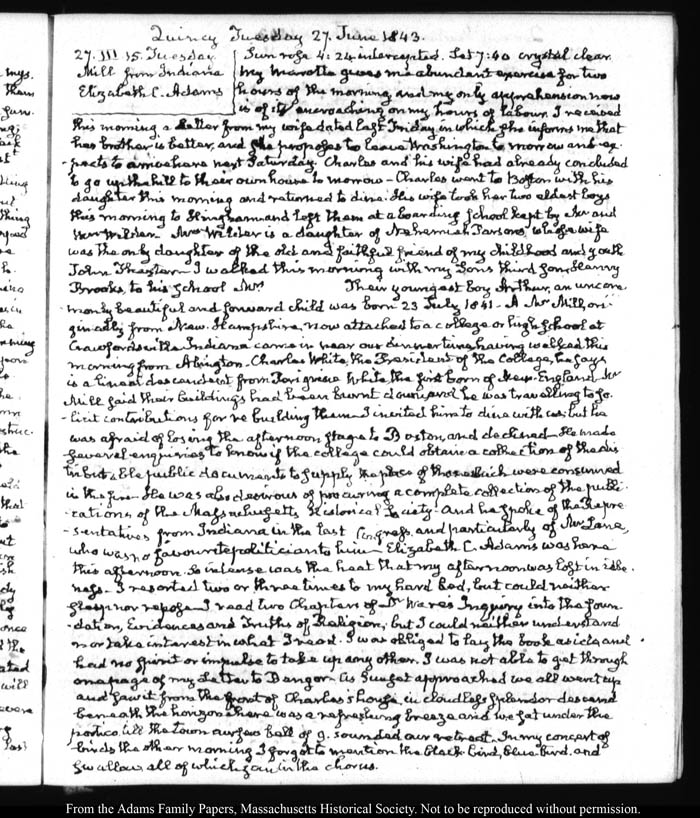 Quincy Tuesday 27. June 1843.
27. III. 15. Tuesday
Mill from Indiana
Elizabeth C. Adams
Sun rose 4:24 intercepted. Set 7:40 crystal clear.
My Marotte gives me abundant exercise for two
hours of the morning and my only apprehension now
is of its encroaching on my hours of labour. I received
this morning a Letter from my wife dated last Friday in which she informs me that
her brother is better, and she proposes to leave Washington to morrow and ex-
-pects to arrive here next Saturday. Charles and his wife had already concluded
to go up the hill to their own house to morrow — Charles went to Boston with his
daughter this morning and returned to dine. His wife took her two eldest boys
this morning to Hingham and left them at a boarding School kept by Mr and
Mrs Wilder. Mrs Wilder is a daughter of Nehemiah Parsons, whose wife
was the only daughter of the old and faithful friend of my childhood and youth
John Thaxter. I walked this morning with my Sons third Son, Henry
Brooks, to his School Mrs
Their youngest boy Arthur, an uncom-
-monly beautiful and forward child was born 23 July 1841 — A Mr Mill, ori-
ginally from New-Hampshire, now attached to a college or high School at
Crawfordsville Indiana came in near our dinner time having walked this
morning from Abington — Charles White, the President of the College, he says
is a lineal descendant from Peregrine White the first born of New-England. Mr
Mill said their buildings had been burnt down, and he was travelling to so-
-licit contributions for re building them — I invited him to dine with us; but he
was afraid of losing the afternoon stage to Boston, and declined — He made
several enquiries to know if the college could obtain a collection of the dis
tributable public documents to supply the place of those which were consumed
in the fire — He was also desirous of procuring a complete collection of the publi-
-cations of the Massachusetts Historical Society — and he spoke of the Repre
-sentatives from Indiana in the last Congress, and particularly of Mr Lane,
who was no favourite politician to him — Elizabeth C. Adams was here
this afternoon. So intense was the heat that my afternoon was lost in idle-
ness — I resorted two or three times to my hard bed, but could neither
sleep nor repose — I read two Chapters of Dr Wares Inquiry into the foun-
-dation, Evidences and Truths of Religion, but I could neither understand
nor take interest in what I read. I was obliged to lay the book aside, and
had no spirit or impulse to take up any other. I was not able to get through
one page of my Letter to Bangor. As Sunset approached we all went up
and saw it from the front of Charles's house, in cloudless splendor descend
beneath the horizon. There was a refreshing breeze and we sat under the
portico till the Town curfew bell of 9. sounded our retreat. In my concert of
birds the other morning I forgot to mention the black bird, blue bird, and
swallow, all of which join in the chorus.
From the Adams Family Papers, Massachusetts Historical Society. Not to be reproduced without permission.